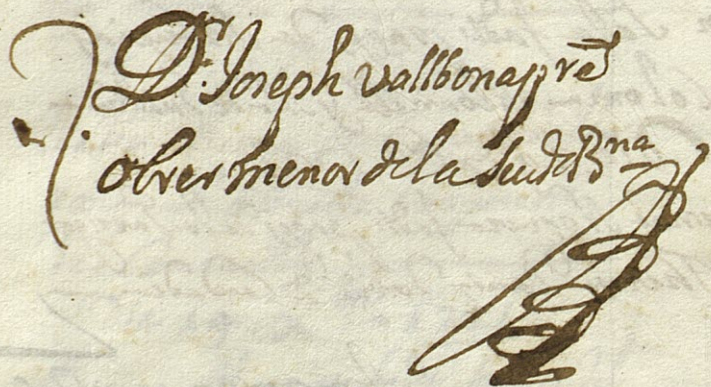 Dr. Joseph Vallbona pre
obrer menor de la Seu de Bna